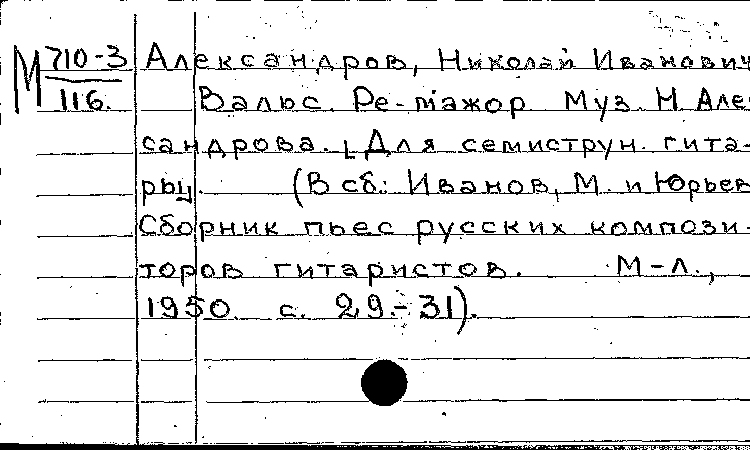 М 710-3 Александров, Николай Иванович
116. Вальс. Ре-мажор. Муз. Н. Алек
сандрова. [Для семиструн. гита-
ры. (В сб.: Иванов, М. и Юрьев
Сборник пьес русских компози-
торов гитаристов. М-Л.,
1950. с. 29-31).